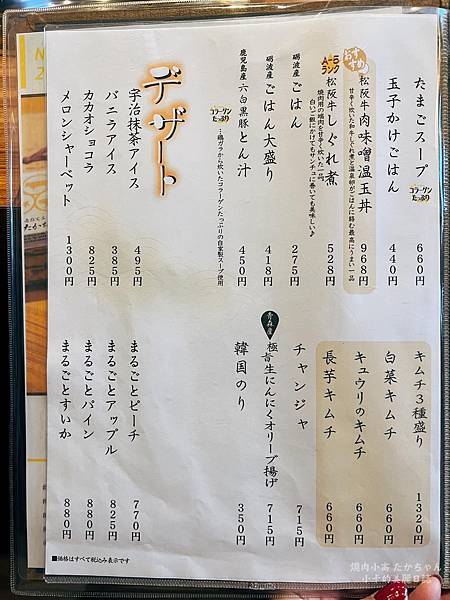 たまごスープ コラーゲンたっぷり 660円
玉子かけごはん 440円
おすすめ!
松阪牛肉味噌温玉丼 968円
A-5ランク
松阪牛しぐれ煮 528円
焼肉用の端肉を甘辛く炊いた一品。
白いご飯にかけてもサンチュに巻いても美味しい♪
砺波産 ごはん 275円
砺波産 ごはん大盛り 418円
鹿児島産 六白黒豚とん汁 450円
コラーゲンたっぷり
…鶏ガラから炊いたコラーゲンたっぷりの自家製スープ使用
キムチ3種盛り 1320円
白菜キムチ 660円
キュウリのキムチ 660円
長芋キムチ 660円
チャンジャ 715円
青森産
極旨生にんにくオリーブ揚げ 715円
韓国のり 350円
デザート
宇治抹茶アイス 495円
バニラアイス 385円
カカオショコラ 825円
メロンシャーベット 1300円
まるごとピーチ 770円
まるごとアップル 825円
まるごとパイン 880円
まるごとすいか 880円
■価格はすべて税込み表示です
焼肉小高 たかちゃん
小卡的美麗日誌